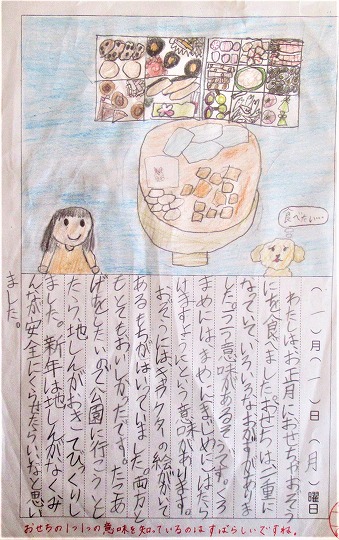 食べたい…
(一)月(一)日(月)曜日
わたしはお正月におせちやおぞう
にを食べました。おせちは二重に
なっていて、いろいろなおかずがありま
した。一つ一つ意味があるそうです。くろ
まめにはまめにまじめにはたら
けますようにという意味があります。
おぞうにはキャラクターの絵がかいて
あるもちがはいっていました。両方と
もとてもおいしかったです。たこあ
げをしたいので公園に行こうとし
たら、地しんがおきてびっくりし
ました。新年は地しんがなくみ
んなが安全にくらせたらいいなと思い
ました。
おせちの1つ1つの意味を知っているのはすばらしいですね。